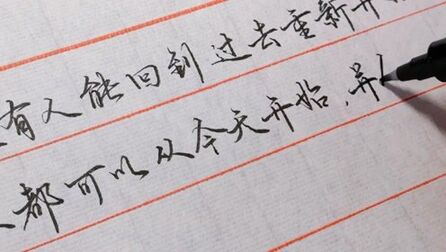 有人能回到过去重新开
都可以从今天开始，